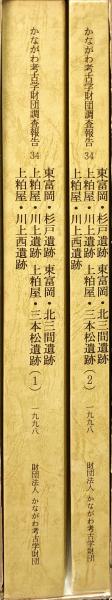 かながわ考古学財団調査報告 34
東富岡・杉戸遺跡 東富岡・北三間遺跡
上粕屋・川上遺跡 上粕屋・三本松遺跡
上粕屋・川上西遺跡
(1)
一九九八
財団法人 かながわ考古学財団
かながわ考古学財団調査報告 34
東富岡・杉戸遺跡 東富岡・北三間遺跡
上粕屋・川上遺跡 上粕屋・三本松遺跡
上粕屋・川上西遺跡
(2)
一九九八
財団法人 かながわ考古学財団